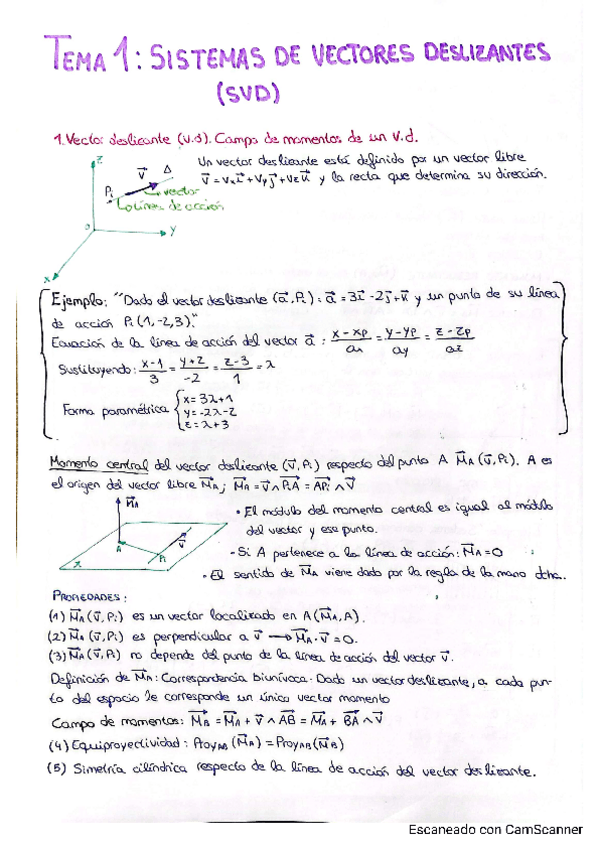 TEMA 1: SISTEMAS DE VECTORES DESLIZANTES
(SVD)
1. Vector deslizante (v.d). Campo de momentos de un v.d.
Un vector deslizante está definido por un vector libre
v⃗ = vxi⃗ + vyj⃗ + vzk⃗ y la recta que determina su dirección.
z
v⃗ Δ
Pi vector
Línea de acción
y
x
Ejemplo: "Dado el vector deslizante (a⃗, Pi): a⃗ = 3i⃗ - 2j⃗ + k⃗ y un punto de su línea
de acción Pi (1,-2,3)."
Ecuación de la línea de acción del vector a⃗: x-xp/ax = y-yp/ay = z-zp/az
Sustituyendo: x-1/3 = y+2/-2 = z-3/1 = λ
Forma paramétrica { x = 3λ+1
y = -2λ-2
z = λ+3
Momento central del vector deslizante (v⃗, Pi) respecto del punto A M⃗A (v⃗, Pi). A es
el origen del vector libre M⃗A; M⃗A = v⃗ ∧ PiA⃗ = APi⃗ ∧ v⃗
M⃗A
A
Pi
v⃗
• El módulo del momento central es igual al módulo
del vector y ese punto.
- Si A pertenece a la línea de acción: M⃗A = 0
• El sentido de M⃗A viene dado por la regla de la mano dcha.
PROPIEDADES:
(1) M⃗A (v⃗, Pi) es un vector localizado en A (M⃗A, A).
(2) M⃗A (v⃗, Pi) es perpendicular a v⃗ → M⃗A · v⃗ = 0.
(3) M⃗A (v⃗, Pi) no depende del punto de la línea de acción del vector v⃗.
Definición de M⃗A: Correspondencia biunívoca: Dado un vector deslizante, a cada pun-
to del espacio le corresponde un único vector momento
Campo de momentos: M⃗B = M⃗A + v⃗ ∧ AB⃗ = M⃗A + BA⃗ ∧ v⃗
(4) Equiproyectividad: ProyAB (M⃗A) = ProyAB (M⃗B)
(5) Simetría cilíndrica respecto de la línea de acción del vector deslizante.
Escaneado con CamScanner